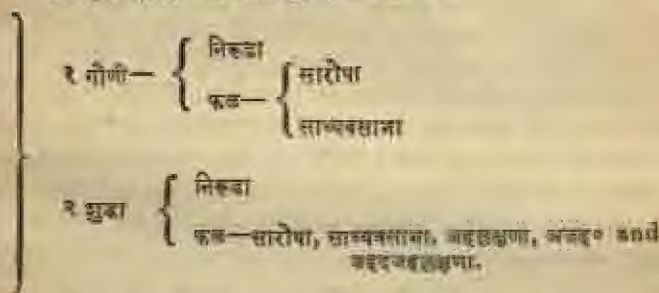 १ गौणी—
निरूढा
फल—
सारोपा
साध्यवसाना
२ शुद्धा
निरूढा
फल—सारोपा, साध्यवसाना, जहल्लक्षणा, अजह० and
जहदजहल्लक्षणा.